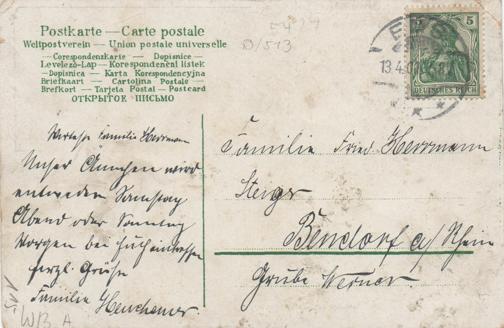 Postkarte — Carte postale
Weltpostverein — Union postale universelle
Correspondenzkarte — Dopisnice
Levelező-Lap — Korespondenční lístek
Dopisnica — Karta Korespondencyjna
Briefkaart — Cartolina Postale
Brefkort — Tarjeta Postal — Postcard
ОТКРЫТОЕ ПИСЬМО
D/513
5
DEUTSCHES REICH
13.4.
Werthe Familie Herrmann
Unser Ännchen wird
entweder Samstag
Abend oder Sonntag
Morgen bei Euch eintreffen
Herzl. Grüße
Familie
Familie Fried. Herrmann
Steiger
Bendorf a/Rhein
Grube Werner
115
W/B A